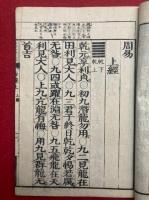 周易
上經
乾上
乾下
乾元亨利貞○初九潛龍勿用○九二見龍在
田利見大人○九三君子終日乾乾夕惕若厲
无咎○九四或躍在淵无咎○九五飛龍在天
利見大人○上九亢龍有悔○用九見群龍无
首吉